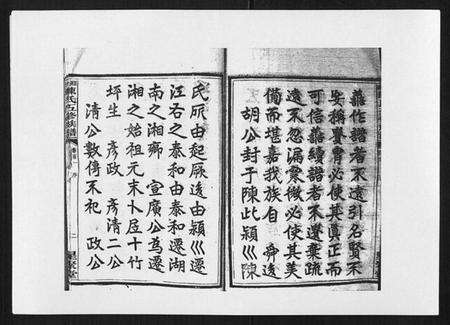 蓋作譜者不遠引名賢不
妄稱貴胄必使其真正而
可信蓋續譜者不遺葉疏
遠不忽漏寒微必使其美
備而堪嘉我族自 舜後
胡公封于陳此潁川陳
氏所由起厥後由潁川遷
江右之泰和由泰和遷湖
南之湘鄉 宣廣公為遷
湘之始祖元末卜居十竹
坪生 彥政 彥清二公
清公數傳不祀 政公
陳氏五修族譜
卷首 序
二